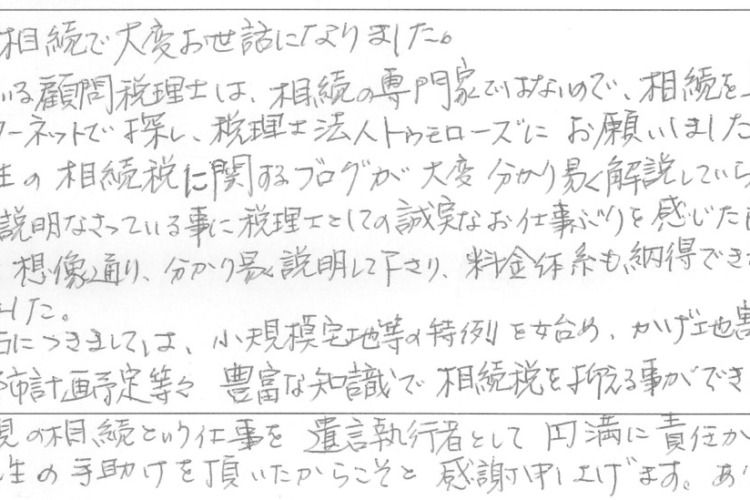 相続で大変お世話になりました。
いる顧問税理士は、相続の専門家ではないので、相続を
ターネットで探し、税理士法人トゥモローズに お願いしました
生の 相続税に関するブログが 大変 分かり易く解説していら
説明なさっている事に税理士としての誠実なお仕事ぶりを感じた
想像通り、分かり易く説明して下さり、料金体系も納得でき
ました。
につきましては、小規模宅地等の特例 を始め、かげ地割
都市計画予定等々 豊富な知識で 相続税を抑える事ができ
の相続という仕事を 遺言執行者として 円満に 責任か
生の 手助けを頂いたからこそと 感謝申し上げます。あり